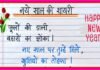 नये साल की शायरी
फूलों की डाली,
बहारों का झोंका।
नए साल पर तुम्हें मिले,
खुशियों का तोहफा।
HAPPY
NEW